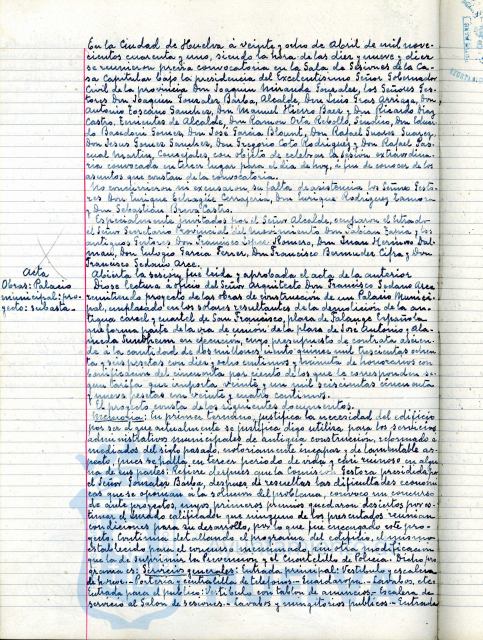 En la Ciudad de Huelva á veinte y ocho de Abril de mil nove-
cientos cuarenta y uno, siendo la hora de las diez y nueve y diez
se reunieron previa convocatoria en la Sala de Sesiones de la Ca-
sa Capitular bajo la presidencia del Excelentísimo Señor Gobernador
Civil de la provincia Don Joaquin Miranda Gonzalez, los Señores Ges-
tores Don Joaquin Gonzalez Barba, Alcalde, Don Luis Arriaga, Don
Antonio Toscano Sanchez, Don Manuel Hierro Baez y Don Ricardo
Castro, Tenientes de Alcalde, Don Ramon Orta Rebollo, Sindico, Don
Gomez, Don José Garcia Blount, Don Rafael Suarez Suarez,
Don Jesus Gomez Sanchez, Don Gregorio Coto Rodriguez y Don Rafael Pas-
cual Martin, Concejales, con objeto de celebrar la sesion extraordina-
ria convocada en lugar para el dia de hoy, á fin de conocer de los
asuntos que constan de la convocatoria.
No concurrieron ni excusaron su falta de asistencia los Señores Gesto-
res Don Enrique Don Enrique Rodriguez
y Don Sebastián Castro.
Especialmente invitados por el Señor Alcalde, ocuparon el Estrado
el Señor Secretario Provincial del Movimiento Don Fabian y los
antiguos Gestores Don Francisco Romero, Don Juan
Don Eulogio Garcia Ferrer, Don Francisco Bermudez y Don
Francisco Sedano Arce.
Abierta la sesión, fué leida y aprobada el acta de la anterior
Acta
Obras: Palacio
municipal: pro-
yecto: subasta.
Diose lectura á oficio del Señor Arquitecto Don Francisco Sedano Arce
remitiendo proyecto de las obras de construccion de un Palacio Munici-
pal, emplazado en los solares resultantes de la demolicion de la an-
tigua carcel y cuartel de San Francisco, plaza de Falange Española
que forma parte de la via de union de la plaza de José Antonio y Ala-
meda Sundheim en ejecucion, cuyo presupuesto de contrata ascien-
de á la cantidad de dos millones ciento quince mil trescientas
y seis pesetas con diez y ocho centimos, y minuta de honorarios con
bonificacion del cincuenta por ciento de los que le corresponden se-
gun tarifa que importa veinte y un mil seiscientas cincuenta
y nueve pesetas con veinte y cuatro centimos.
El proyecto consta de los siguientes documentos.
Memoria: En primer termino, justifica la necesidad del edificio
por ser el que actualmente se utiliza para los servicios
administrativos municipales de antigua construcion, reformado á
mediados del siglo pasado, notoriamente incapaz y de lamentable as-
pecto, pues se halla en tercer periodo de vida y casi ruinoso en algu-
na de sus partes: Refiere despues que la Comisión Gestora presidida por
el Señor Gonzalez Barba, despues de resueltas las dificultades economi-
cas que se oponian á la solucion del problema, convocó un concurso
de ante proyectos, cuyos primeros premios quedaron desiertos por es-
timar el Jurado calificador que ninguno de los presentados reunian
condiciones para su desarrollo, por lo que fué encargado este pro-
yecto. Continúa detallando el programa del edificio, el mismo
establecido para el concurso mencionado, sin otra modificacion
que la de suprimir la y el Cuartelillo de Policia. Dicho pro-
grama es: Servicios generales: Entrada principal: Vestibulo y escalera
de - Porteria y centralilla de telefonos - Guardaropa - Lavabos, etc.
Entrada para el publico: Vestibulo con tablon de anuncios - Escalera de
servicio al Salon de sesiones. - Lavabos y mingitorios publicos - Entrada